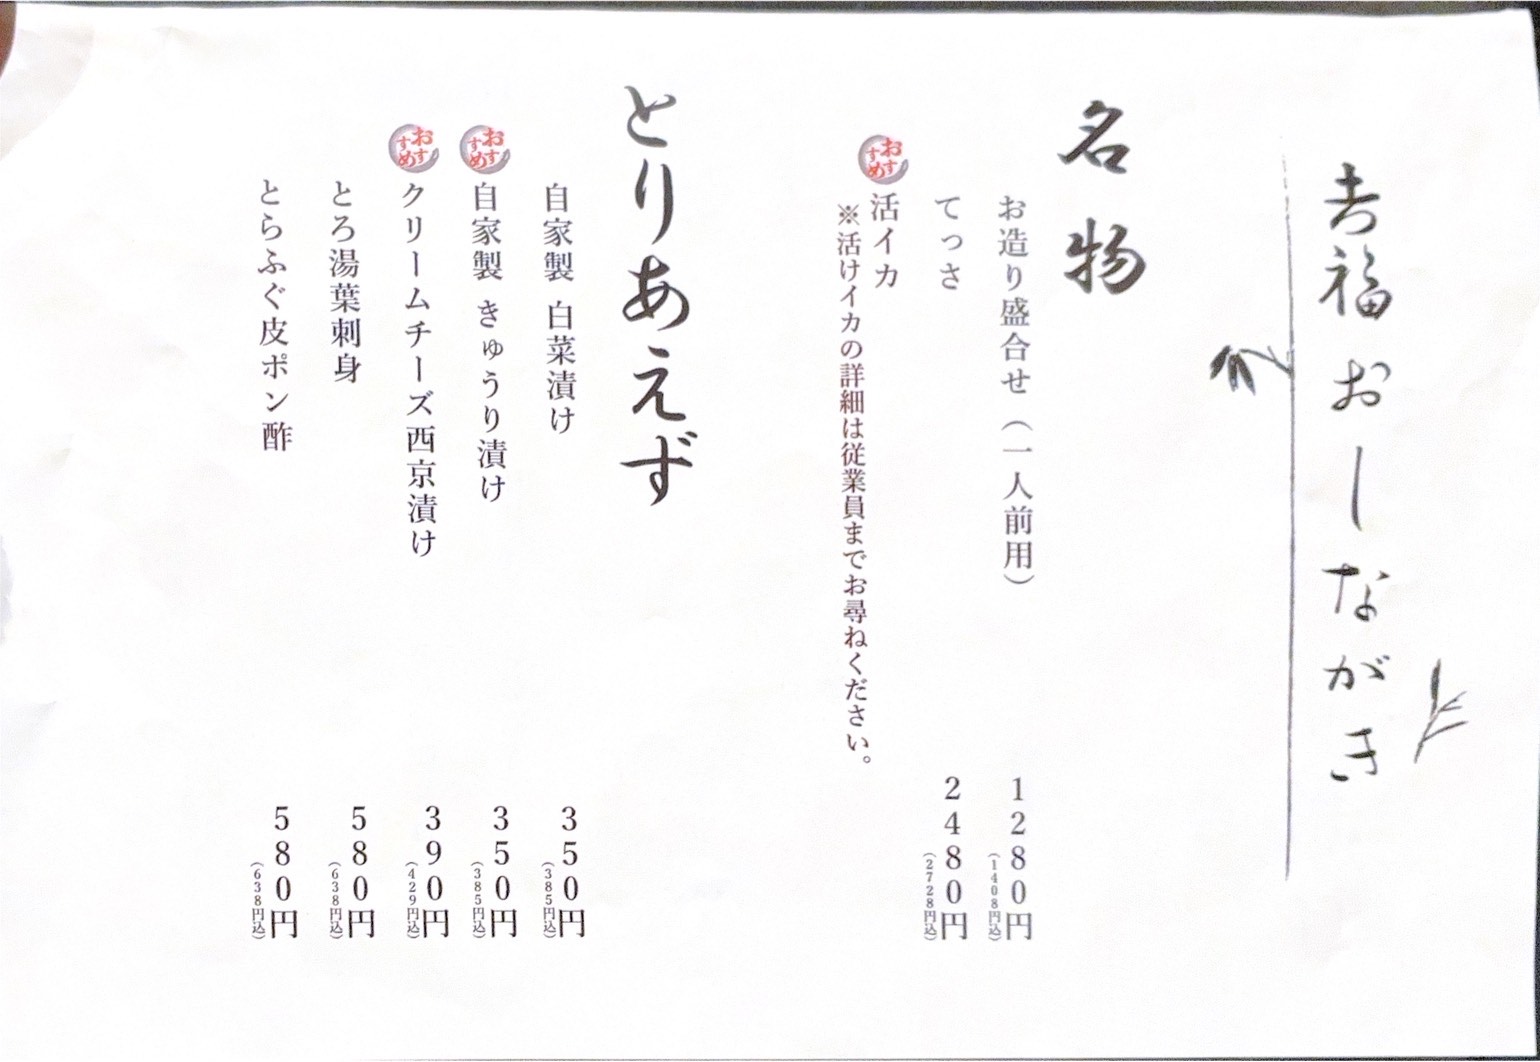 吉福おしながき
名物
お造り盛合せ（一人前用）
1280円
（1408円込）
てっさ
2480円
（2728円込）
おすすめ
活イカ
※活けイカの詳細は従業員までお尋ねください。
とりあえず
自家製 白菜漬け
350円
（385円込）
おすすめ
自家製 きゅうり漬け
350円
（385円込）
おすすめ
クリームチーズ西京漬け
390円
（429円込）
とろ湯葉刺身
580円
（638円込）
とらふぐ皮ポン酢
580円
（638円込）